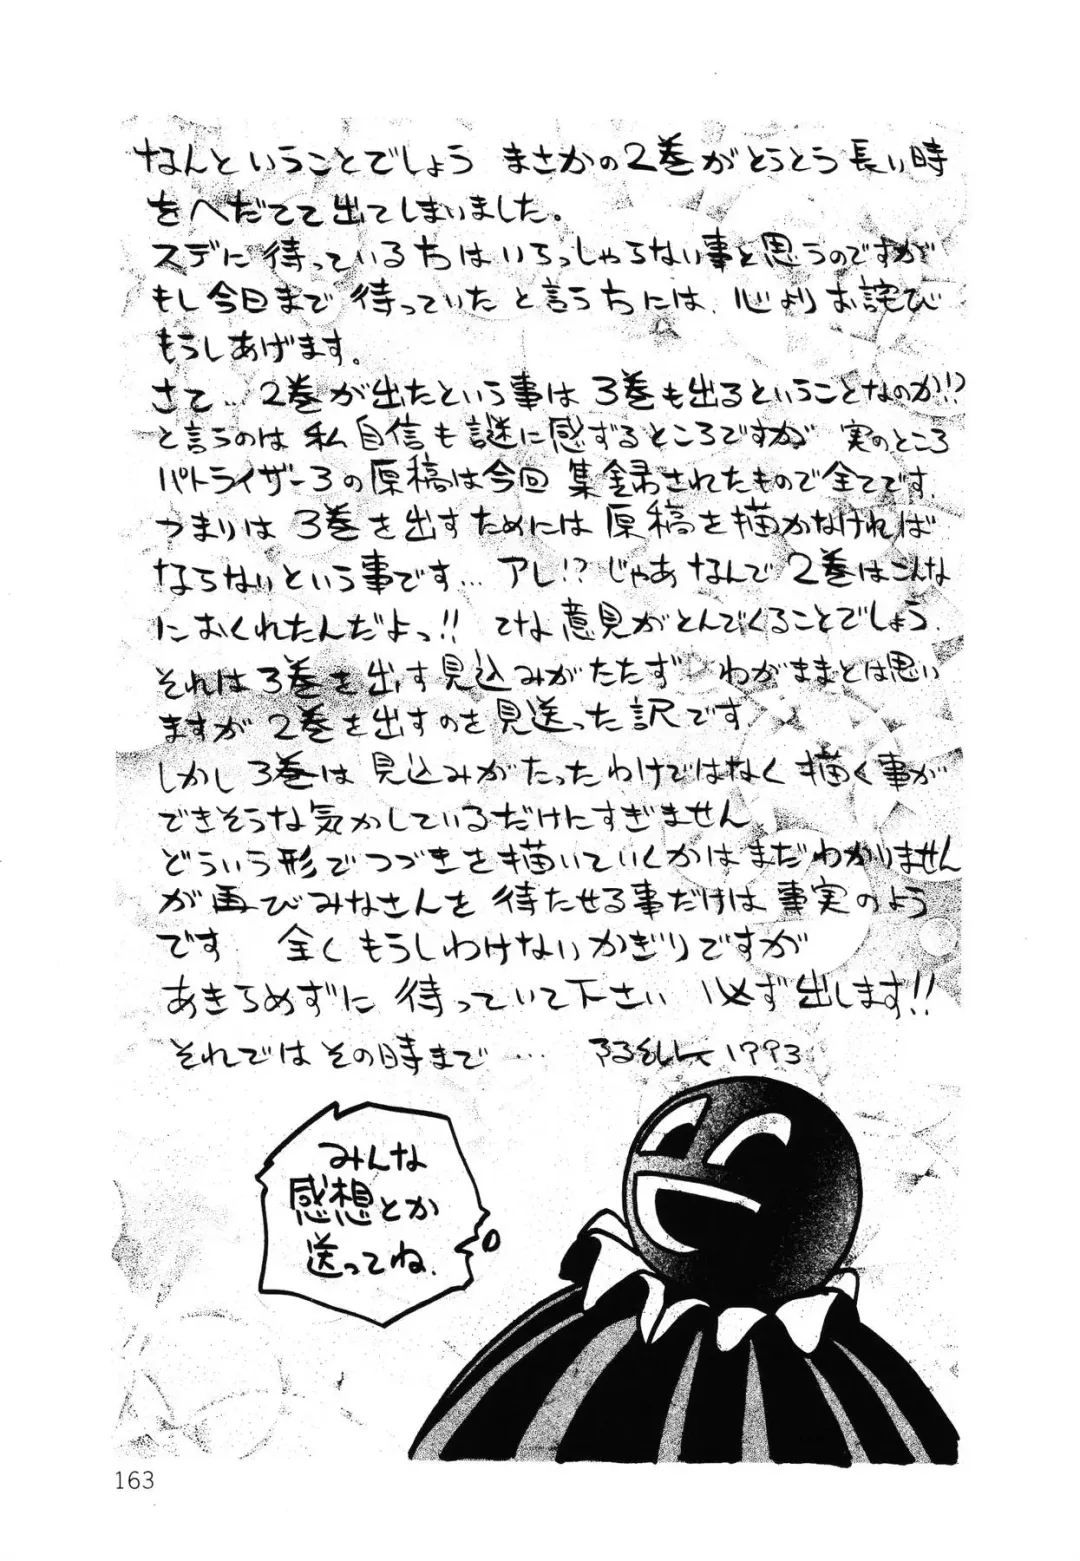 なんということでしょう まさかの2巻がとうとう長い時
をへだてて出てしまいました。
スデに待っている方はいらっしゃらない事と思うのですが
もし今日まで待っていたと言う方には、心よりお詫び
もうしあげます。
さて‥2巻が出たという事は3巻も出るということなのか!?
と言うのは私自信も謎に感ずるところですが 実のところ
パトライザー3の原稿は今回集録されたもので全てです。
つまりは3巻を出すためには原稿を描かなければ
ならないという事です… アレ!? じゃあなんで2巻はこんな
におくれたんだよっ!! てな意見がとんでくることでしょう。
それは3巻を出す見込みがたたず わがままとは思い
ますが2巻を出すのを見送った訳です
しかし3巻は見込みがたったわけではなく描く事が
できそうな気がしているだけにすぎません
どういう形でつづきを描いていくかはまだわかりません
が再びみなさんを待たせる事だけは事実のよう
です 全くもうしわけないかぎりですが
あきらめずに待っていて下さい 必ず出します!!
それではその時まで… 1993
みんな
感想とか
送ってね.
163